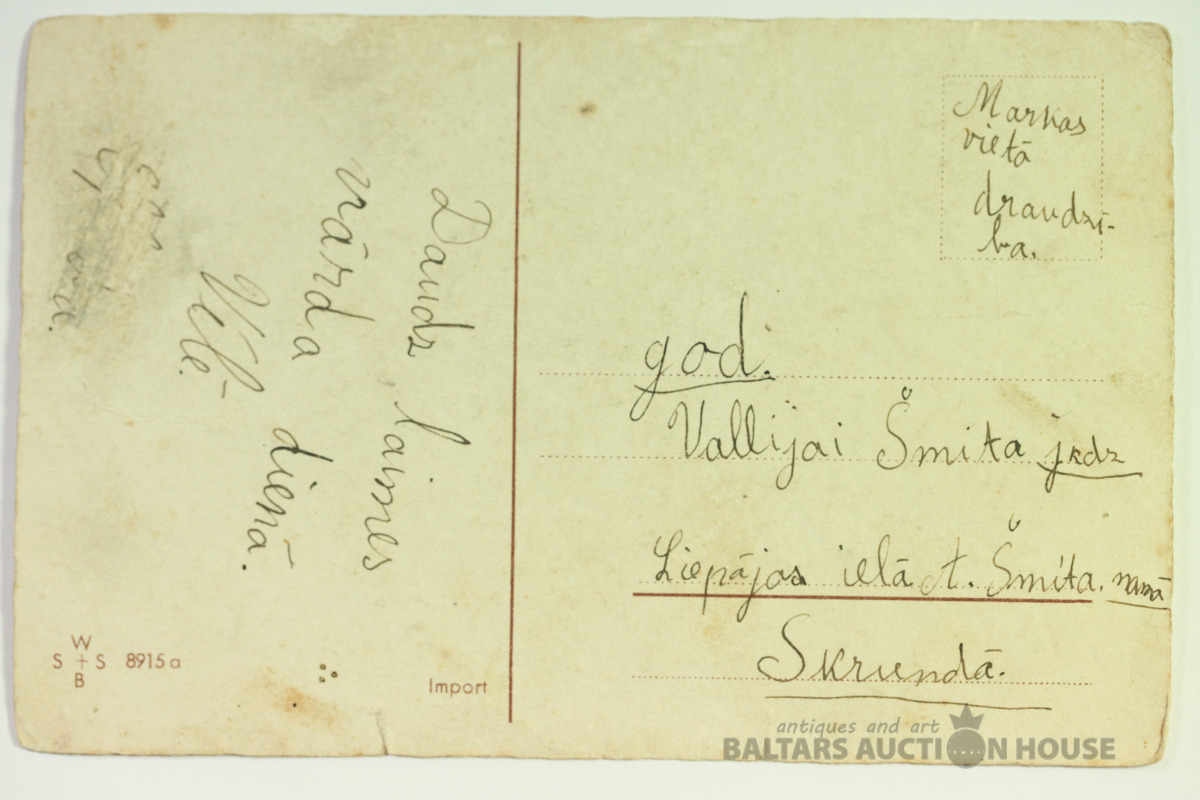 Daudz laimes
vārda dienā.
Vēlē
W
S + S 8915a
B
Import
Markas
vietā
draudzī-
ba.
god.
Vallijai Šmita jkdz
Liepājas ielā A. Šmita. namā
Skrundā.
antiques and art
BALTARS AUCTION HOUSE